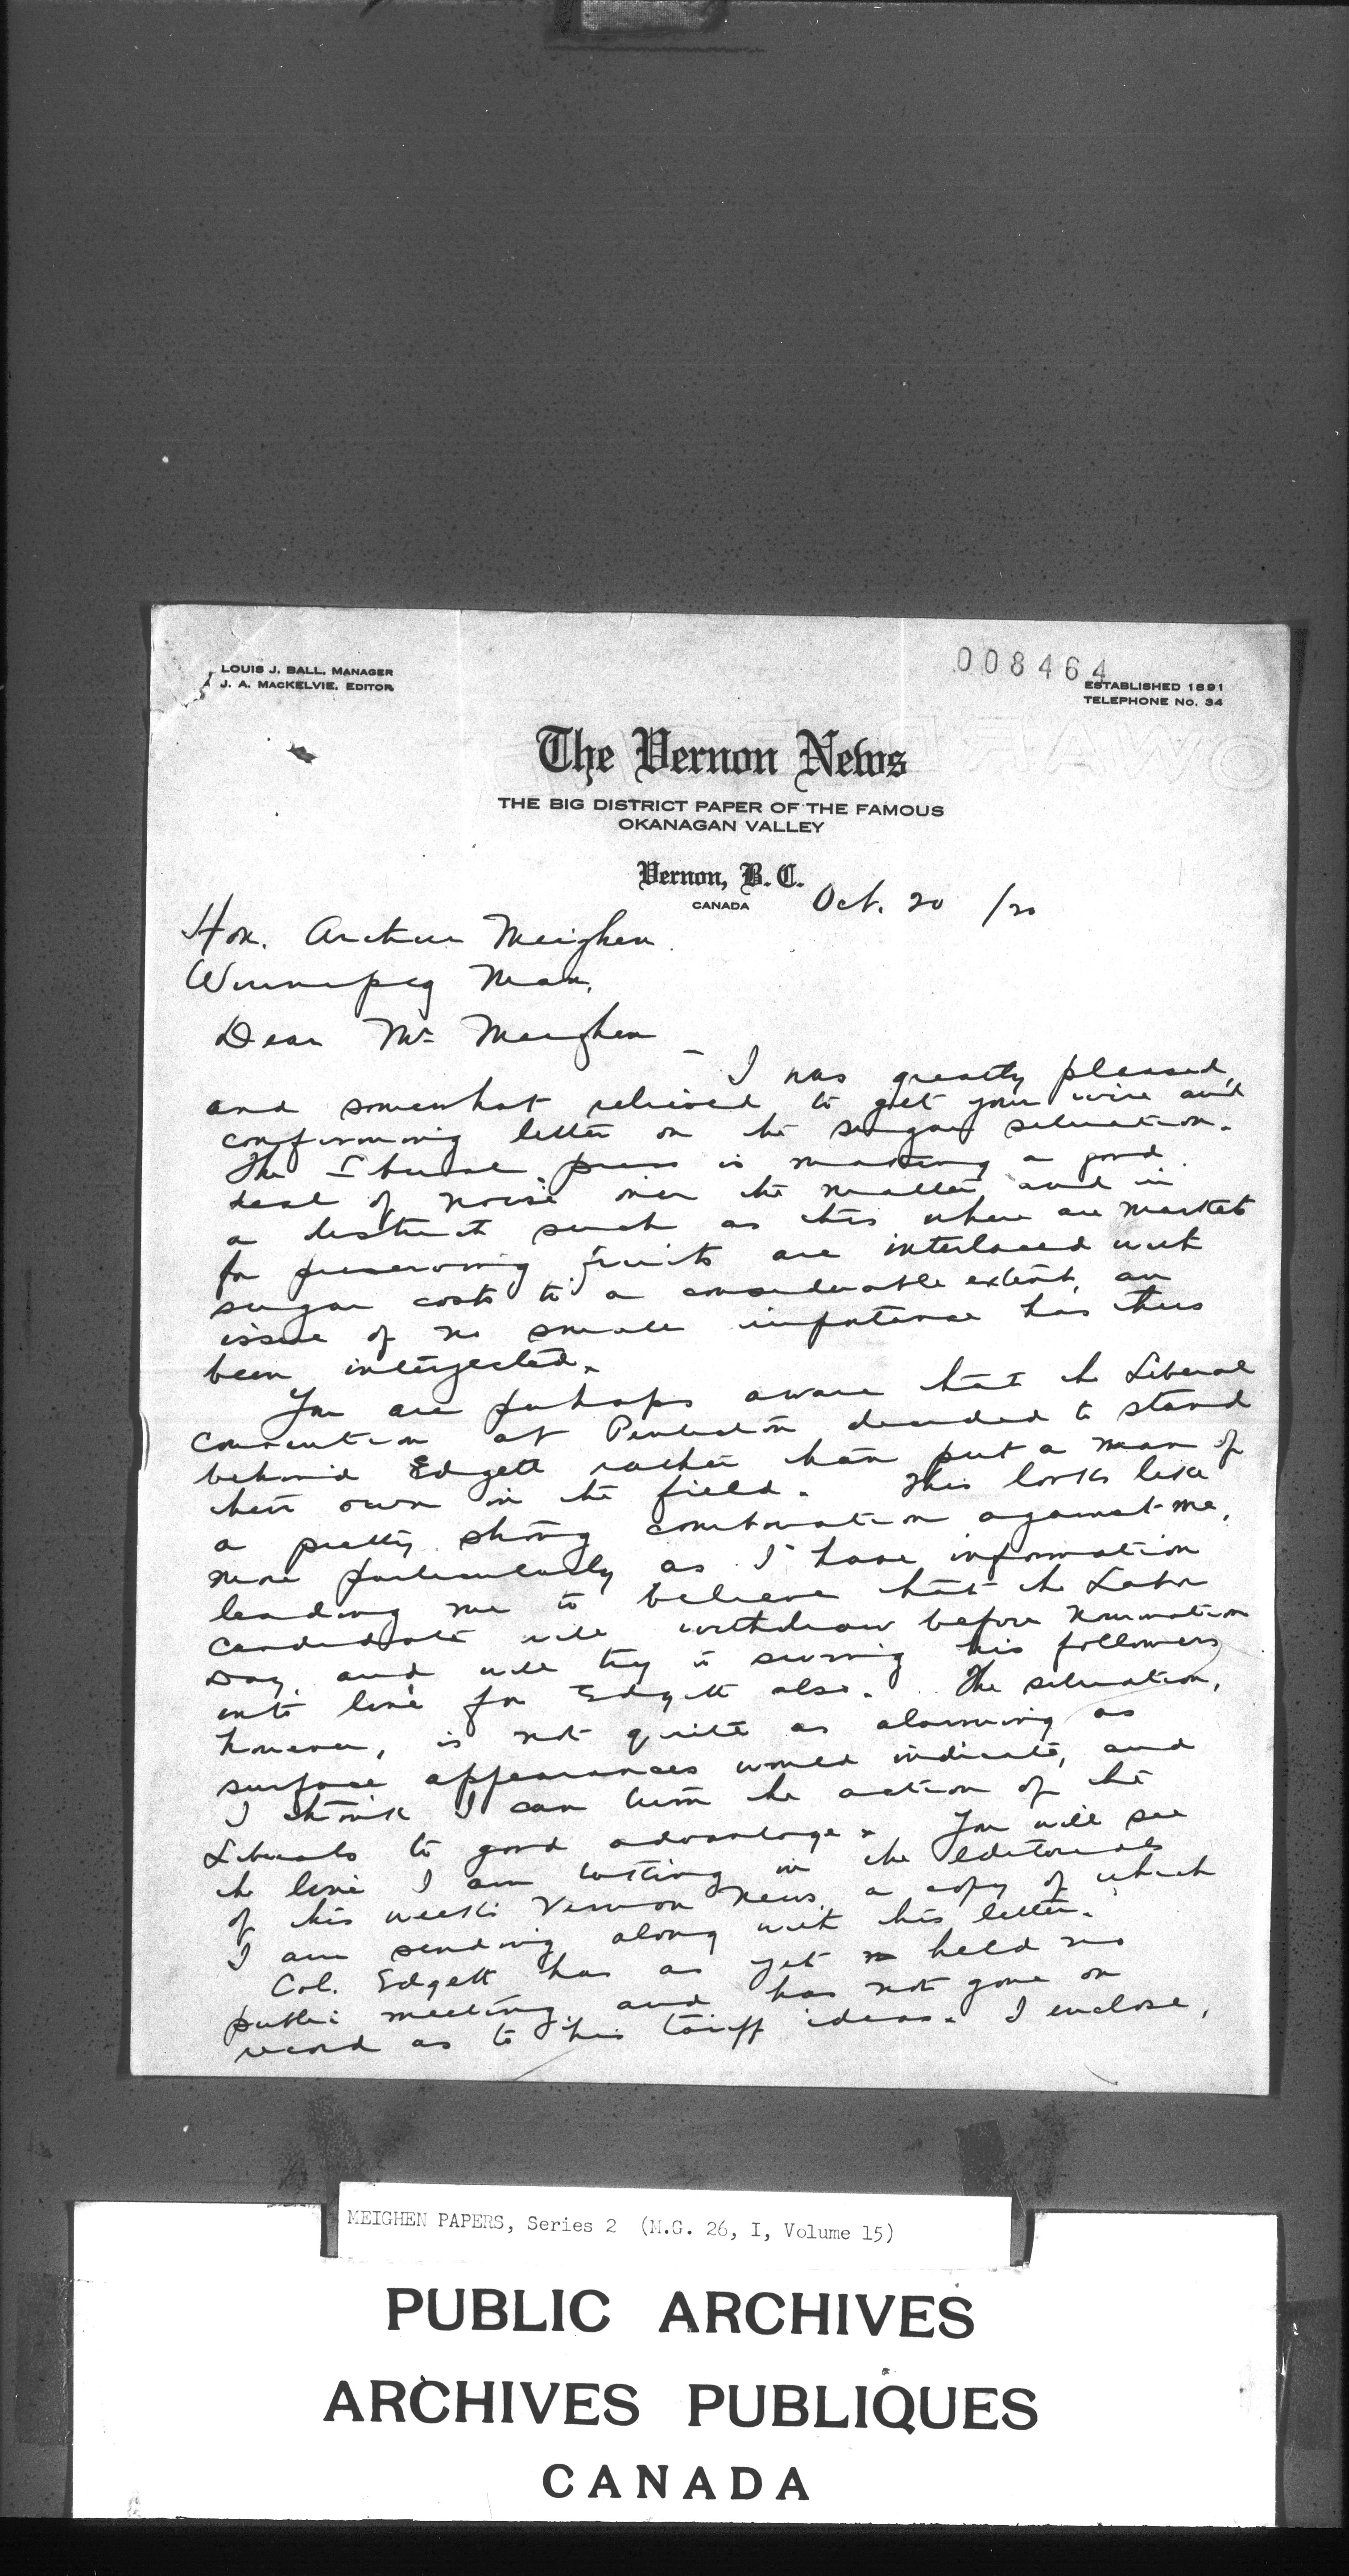 LOUIS J. BALL, MANAGER
J. A. MACKELVIE, EDITOR
008464
ESTABLISHED 1891
TELEPHONE No. 34
The Vernon News
THE BIG DISTRICT PAPER OF THE FAMOUS
OKANAGAN VALLEY
Vernon, B. C.
CANADA
Oct. 20 /20
Hon. Arthur Meighen
Winnipeg Man.
Dear Mr Meighen
– I was greatly pleased,
and somewhat relieved to get your wire and
confirming letter on the sugar situation.
The Liberal press is making a good
deal of noise over the matter and in
a district such as this where our markets
for preserving fruits are interlaced with
sugar costs to a considerable extent, an
issue of no small importance has thus
been interjected.
You are perhaps aware that the Liberal
convention at Penticton decided to stand
behind Edgett rather than put a man of
their own in the field. This looks like
a pretty strong combination against me,
more particularly as I have information
leading me to believe that the Labor
candidate will withdraw before nomination
Day, and will try to swing his followers
into line for Edgett also. The situation,
however, is not quite as alarming as
surface appearances would indicate, and
I think I can turn the action of the
Liberals to good advantage. You will see
the line I am taking in the editorials
of this weeks Vernon News, a copy of which
I am sending along with this letter.
Col. Edgett has as yet held no
public meeting, and has not gone on
record as to his tariff ideas. I enclose,
MEIGHEN PAPERS, Series 2 (M.G. 26, I, Volume 15)
PUBLIC ARCHIVES
ARCHIVES PUBLIQUES
CANADA